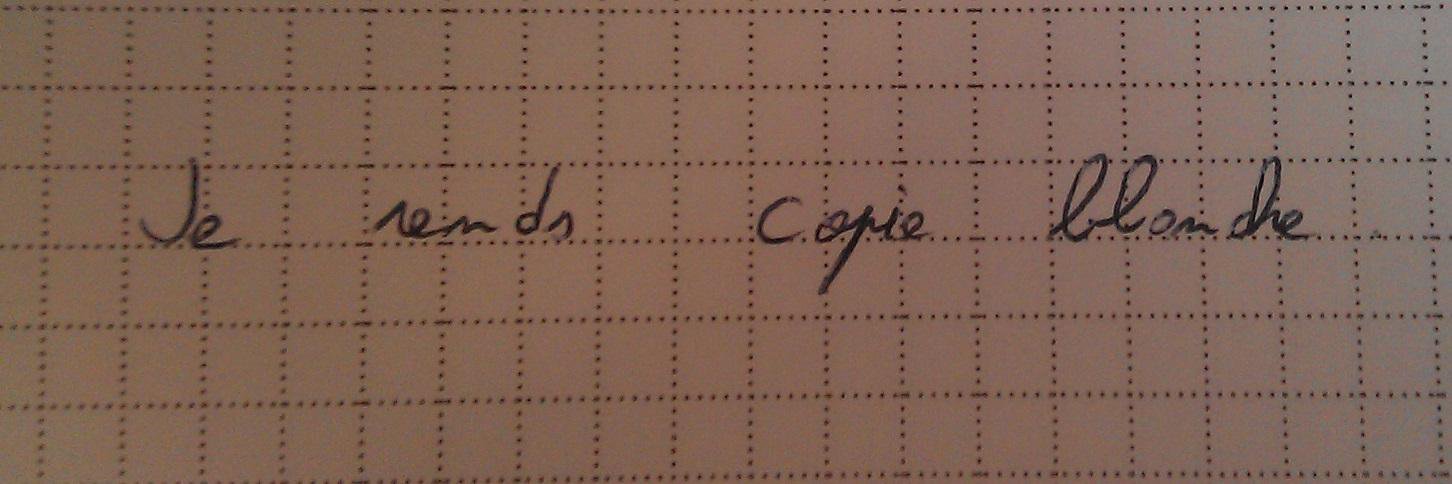 Je rends copie blanche.